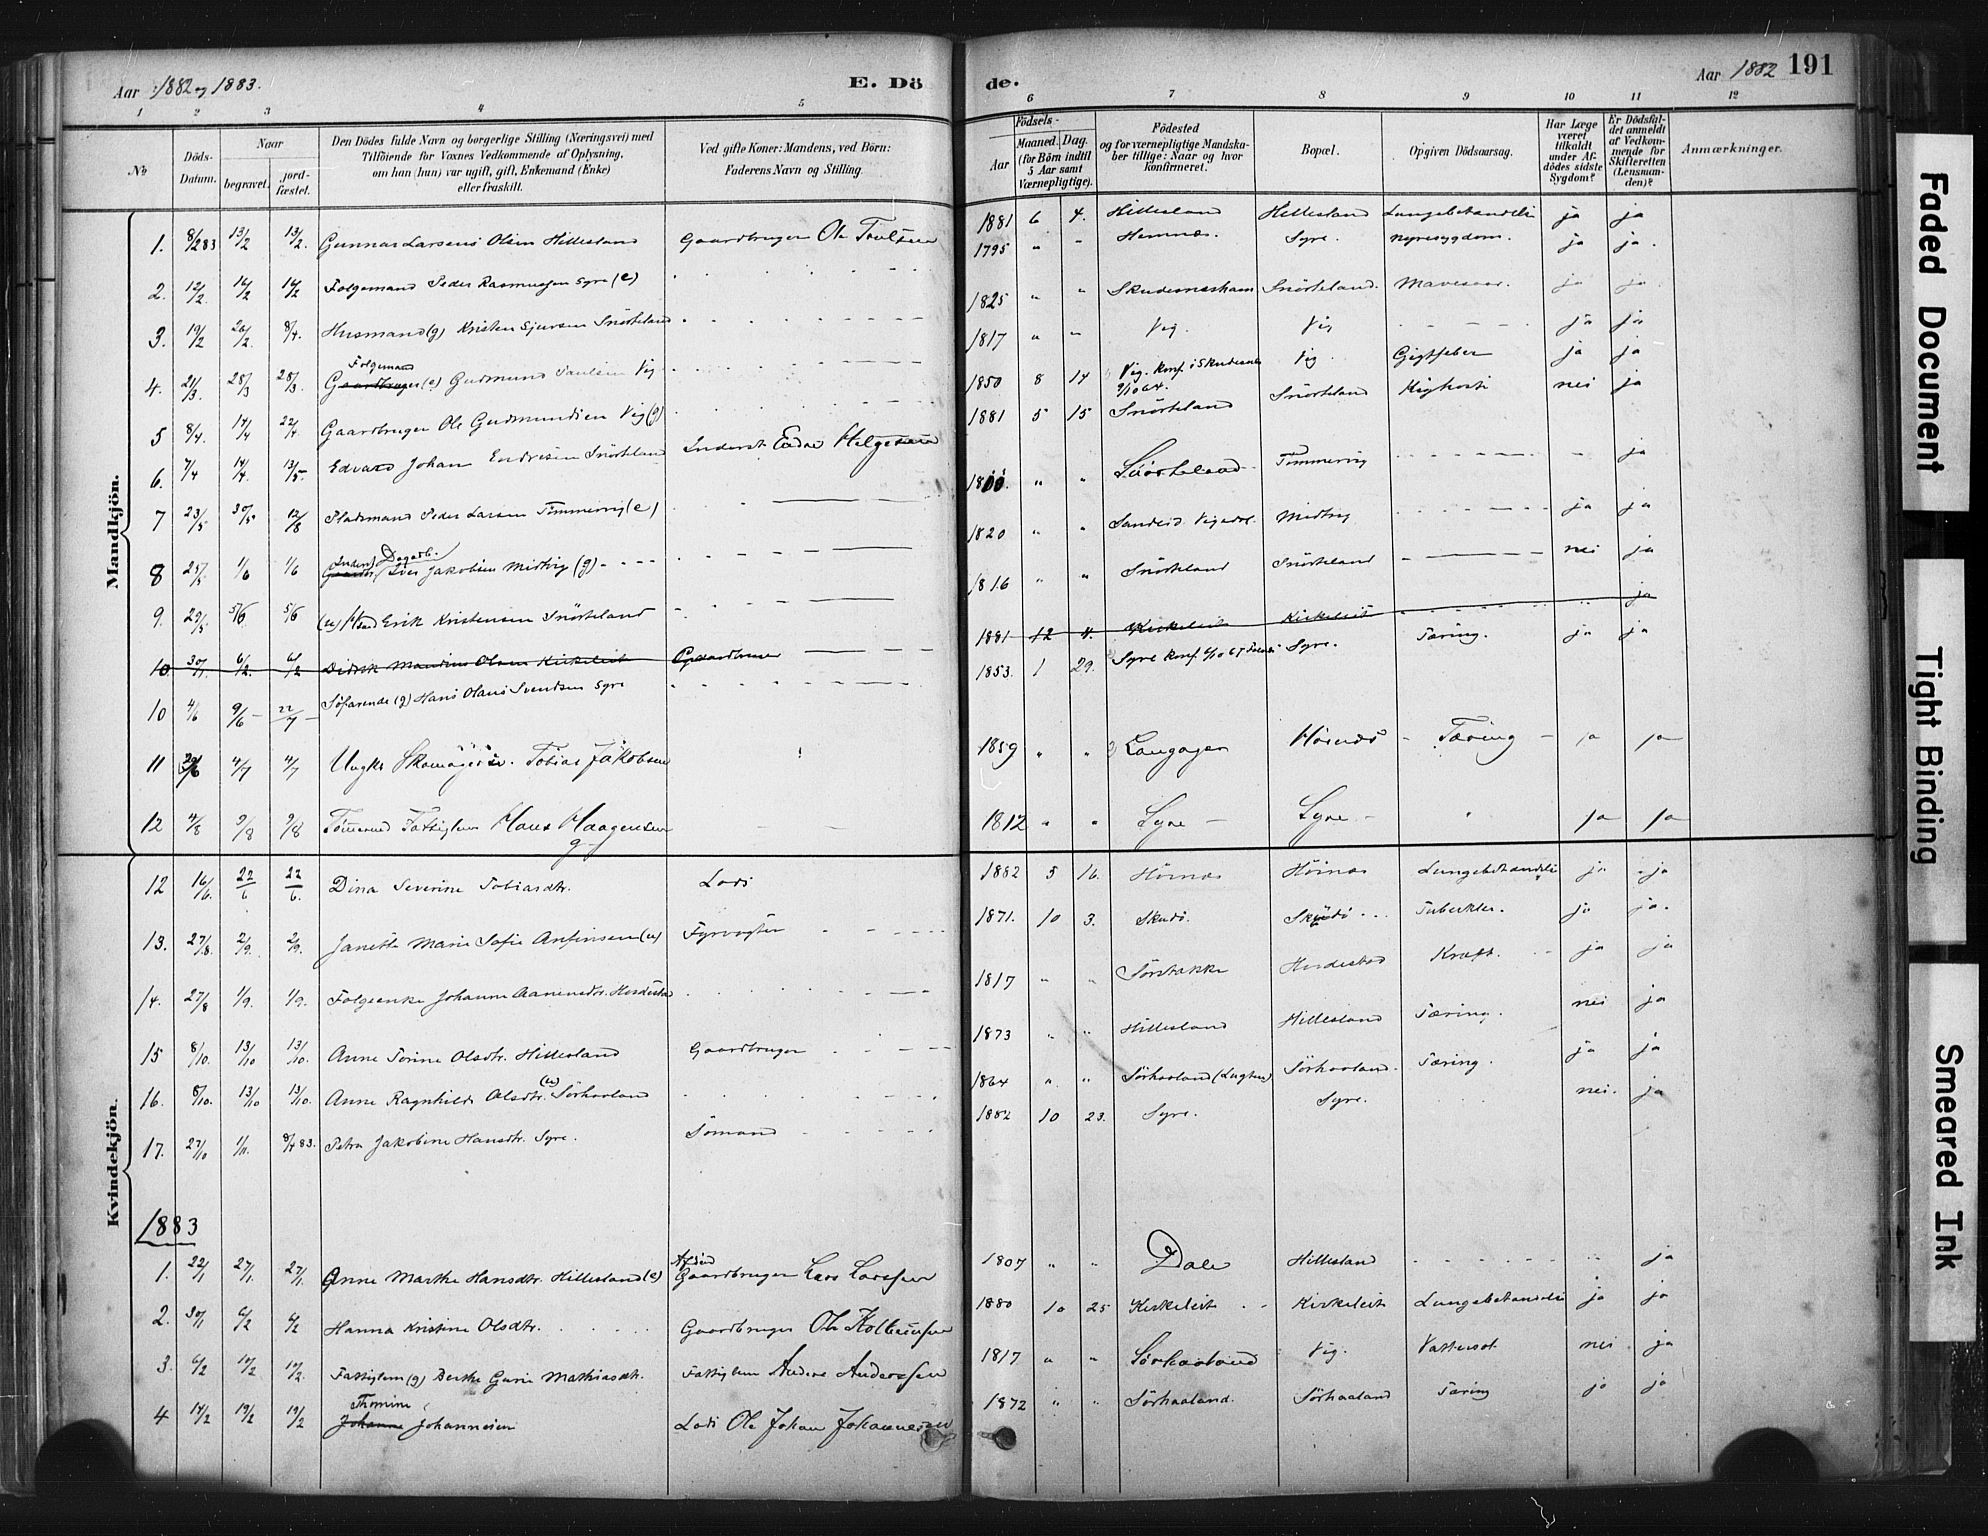 Aar 1882 og 1883.
E. Döde.
Aar 1882
191
1 2 3 4 5 6 7 8 9 10 11 12
No
Döds-Datum.
Naar
begravet.
jordfæstet.
Den Dödes fulde Navn og borgerlige Stilling (Næringsvei) med Tilföiende for Voxnes Vedkommende af Oplysning, om han (hun) var ugift, gift, Enkemand (Enke) eller fraskilt.
Ved gifte Koner: Mandens, ved Börn: Faderens Navn og Stilling.
Födsels-
Aar
Maaned. Dag.
(for Börn indtil 5 Aar samt Værnepligtige).
Födested og for værnepligtige Mandskaber tillige: Naar og hvor konfirmeret.
Bopæl.
Opgiven Dödsaarsag.
Har Læge været tilkaldt under Afdödes sidste Sygdom?
Er Dödsfaldet anmeldt af Vedkommende for Skifteretten (Lensmanden)?
Anmærkninger.
Mandkjön.
1. 8/2 83 13/2 13/2. Gunnar Larsens Olsen Hillesland Gaardbruger Ole 1881 6 4. Hillesland Hillesland ja ja
2. 12/2. 16/2 16/2 Folgemand Peder Rasmussen Syre (e) 1795 " " Hemnæs. Syre. Nyresygdom. ja ja.
3. 19/2 26/2. 8/4. Husmand (g) Kristen Sjursen Snörteland 1825 " " Skudesneshavn Snörteland. Mavesaar. ja ja
4. 21/3. 28/3 28/3. Folgemand Gaardbruger (e) Gudmund Paulsen Vig 1817 " " Vig. Vig ja ja
5 8/4. 14/4 22/4 Gaardbruger Ole Gudmundsen Vig (g) 1850 8 14 Vig. Konf. i Skudesnes 9/10 64. Vig. Gigtfeber ja ja
6. 7/4 14/4. 13/5. Edvard Johan Endresen Snörteland Inderst Endre Helgesen 1881 5 15 Snörteland Snörteland Kighoste nei ja
7 23/5 30/5 12/8 Pladsmand Peder Larsen Timmervig (e) " " Snörteland Timmervig ja
8 25/5 1/6 1/6 Inderst Dagarb. Iver Jakobsen Midtvig (g) 1820 " " Sandeid. Midtvig ja ja
9. 29/5 5/6 5/6 Erik Kristensen Snörteland 1816 " " Snörteland Snörteland nei ja
10 30/1. 6/2. 6/2 Didrik Mandius Olsen Kirkeleit Gaardbruger 1881 12 4. Kirkeleit Kirkeleit ja
10 4/6 9/6 22/7 Söfarende (g) Hans Olaus Svendsen Syre 1853. 1 29. Syre Syre. Tæring. ja ja
11 4/7 4/7 Ungkr. Tobias Jakobsen 1859 " " Langager Hörnæs Tæring ja ja
12 4/8 9/8 9/8 Tömmermd Fattiglem Hans Haagensen g 1812 " " Syre Syre " ja ja
Kvindekjön.
12 16/6. 22/6 22/6. Dina Severine Tobiasdtr. Lods 1882 5 16. Hörnæs Hörnæs ja ja
13. 27/8. 2/9. 2/9. Janette Marie Sofie Anfinsen (u) Fyrvogter 1871. 10 3. Skudö. Skudö Tuberkler. ja ja.
14. 27/8 1/9. 1/9. Folgeenke Johanne 1817 " " Kræft. ja ja
15 8/10. 13/10 13/10. Anne Torine Olsdtr. Hillesland Gaardbruger 1873 " " Hillesland Hillesland Tæring. nei ja
16. 8/10. 13/10 13/10. Anne Ragnhild Olsdtr. (u) Sörhaaland 1864 " " Sörhaaland Sörhaaland. Tæring. ja ja
17. 27/10 1/11. 8/4 83. Petra Jakobine Hansdtr. Syre. Sömand 1882 10 23. Syre. Syre. nei. ja
1883
1. 22/1 27/1. 27/1. Anne Marthe Hansdtr. Hillesland (e) Afdöd Gaardbruger Lars Larssen 1807 " " Dale Hillesland ja
2. 30/1 6/2 6/2 Hanna Kristine Olsdtr. Gaardbruger Ole 1880 10 25 Kirkeleit Kirkeleit ja ja
3. 6/2 10/2 10/2. Fattiglem (g) Berthe Gurie Mathiasdtr. Fattiglem Anders Anderssen 1817 " " Sörhaaland Vig. Vattersot. nei ja
4 14/2 19/2 19/2 Thomine Johanne Johannesen Lods Ole Johan Johannesen 1872 " " Sörhaaland. Sörhaaland Tæring ja ja
Faded Document
Tight Binding
Smeared Ink